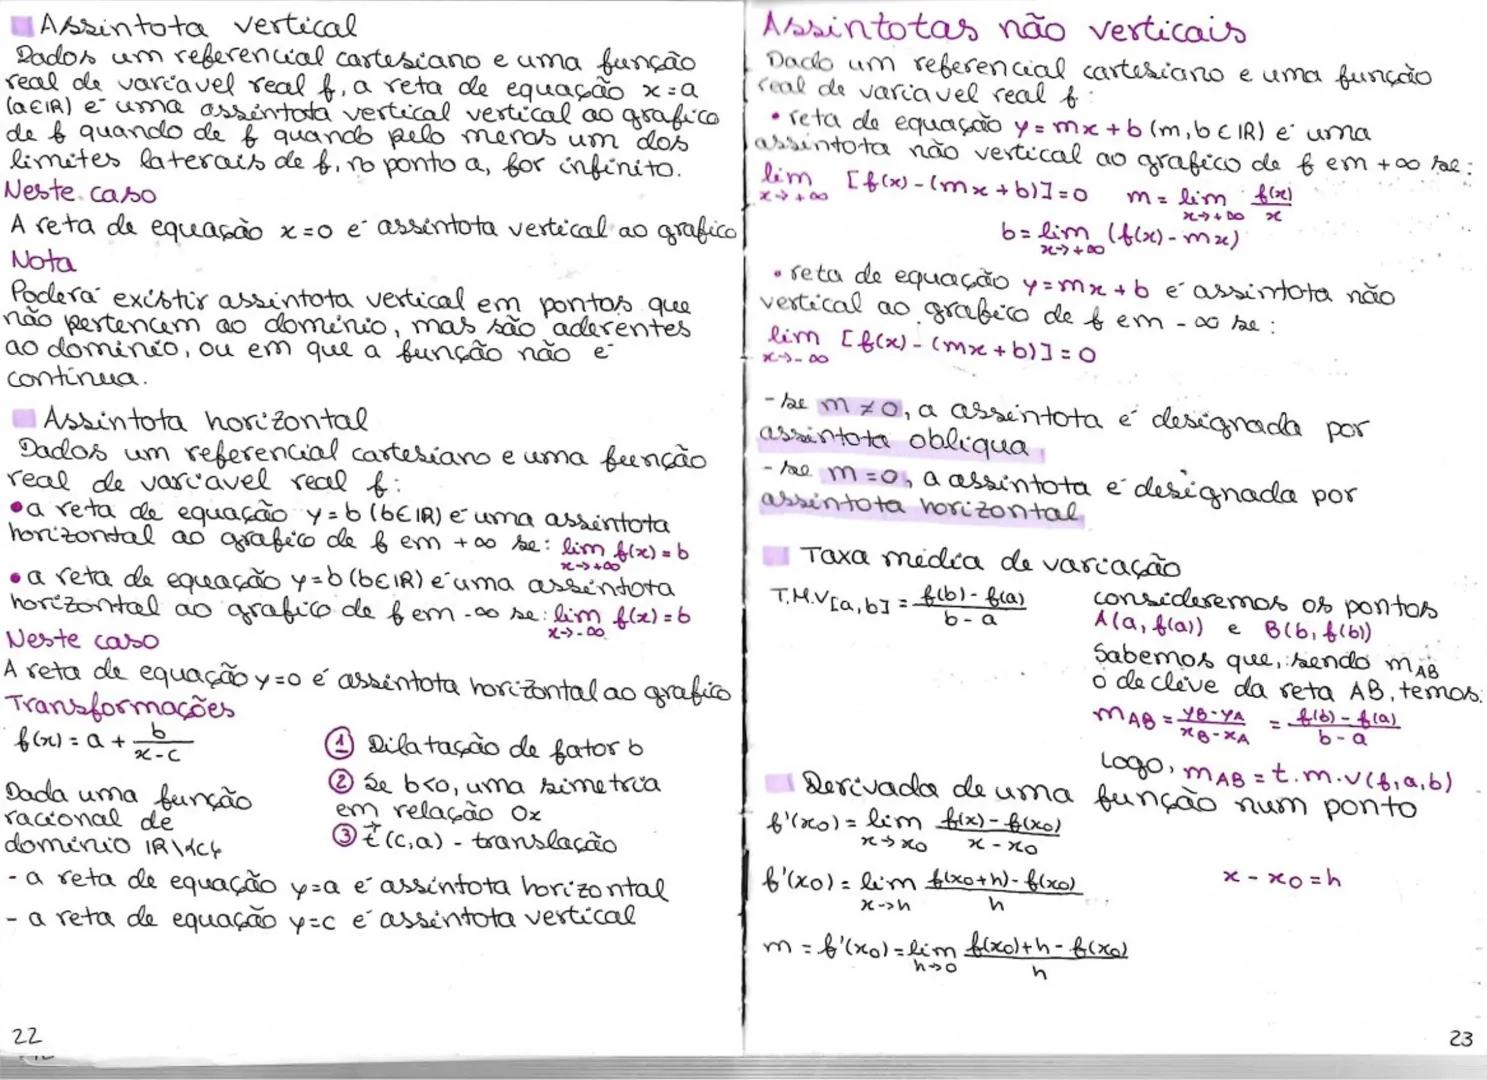 Assintota vertical
Dados um referencial cartesiano e uma função
real de variavel real f, a reta de equação x=a
(a∈IR) é uma assintota vertical vertical ao grafico
de f quando de f quando pelo menos um dos
limites laterais de f, no ponto a, for infinito.
Neste caso
A reta de equação x=0 é assintota vertical ao grafico
Nota
Poderá existir assintota vertical em pontos que
não pertencem ao dominio, mas são aderentes
ao dominio, ou em que a função não é
continua.
Assintota horizontal
Dados um referencial cartesiano e uma função
real de variavel real f:
• a reta de equação y=b (b∈IR) é uma assintota
horizontal ao grafico de f em +∞ se: lim f(x)=b
x→+∞
• a reta de equação y=b (b∈IR) é uma assintota
horizontal ao grafico de f em -∞ se: lim f(x)=b
x→-∞
Neste caso
A reta de equação y=0 é assintota horizontal ao grafico
Transformações
f(x) = a + b/(x-c)
① Dilatação de fator b
② Se b<0, uma simetria
em relação Ox
③ t⃗ (c,a) - translação
Dada uma função
racional de
dominio IR\{c}
- a reta de equação y=a é assintota horizontal
- a reta de equação y=c é assintota vertical
22
Assintotas não verticais
Dado um referencial cartesiano e uma função
real de variavel real f:
• reta de equação y=mx+b (m,b∈IR) é uma
assintota não vertical ao grafico de f em +∞ se:
lim [f(x)-(mx+b)]=0 m = lim f(x)/x
x→+∞ x→+∞
b = lim (f(x)-mx)
x→+∞
• reta de equação y=mx+b é assintota não
vertical ao grafico de f em -∞ se:
lim [f(x)-(mx+b)]=0
x→-∞
- se m≠0, a assintota é designada por
assintota obliqua
- se m=0, a assintota é designada por
assintota horizontal
Taxa média de variação
T.M.V[a,b] = (f(b)-f(a))/(b-a)
consideremos os pontos
A(a,f(a)) e B(b,f(b))
Sabemos que, sendo mAB
o declive da reta AB, temos:
mAB = (yB-yA)/(xB-xA) = (f(b)-f(a))/(b-a)
Logo, mAB = t.m.v(f,a,b)
Derivada de uma função num ponto
f'(x0) = lim (f(x)-f(x0))/(x-x0)
x→x0
f'(x0) = lim (f(x0+h)-f(x0))/h x-x0=h
x→h
m = f'(x0) = lim (f(x0)+h-f(x0))/h
h→0
23